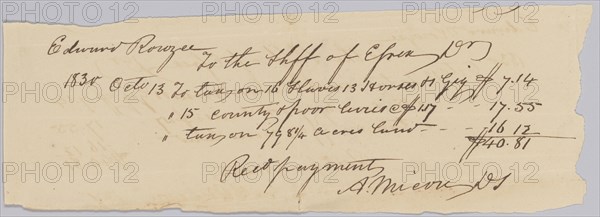 Edward Rowzee
To the Shff of Essex Dr
1830 Octo 13 To tax on 16 Slaves 13 Horses & 1 Gig $ 7.14
" 15 county & poor levies @ $1.17 - - 17.55
" tax on 798 1/4 acres Land - - 16 12
$40.81
Recd payment
A. Micou DS